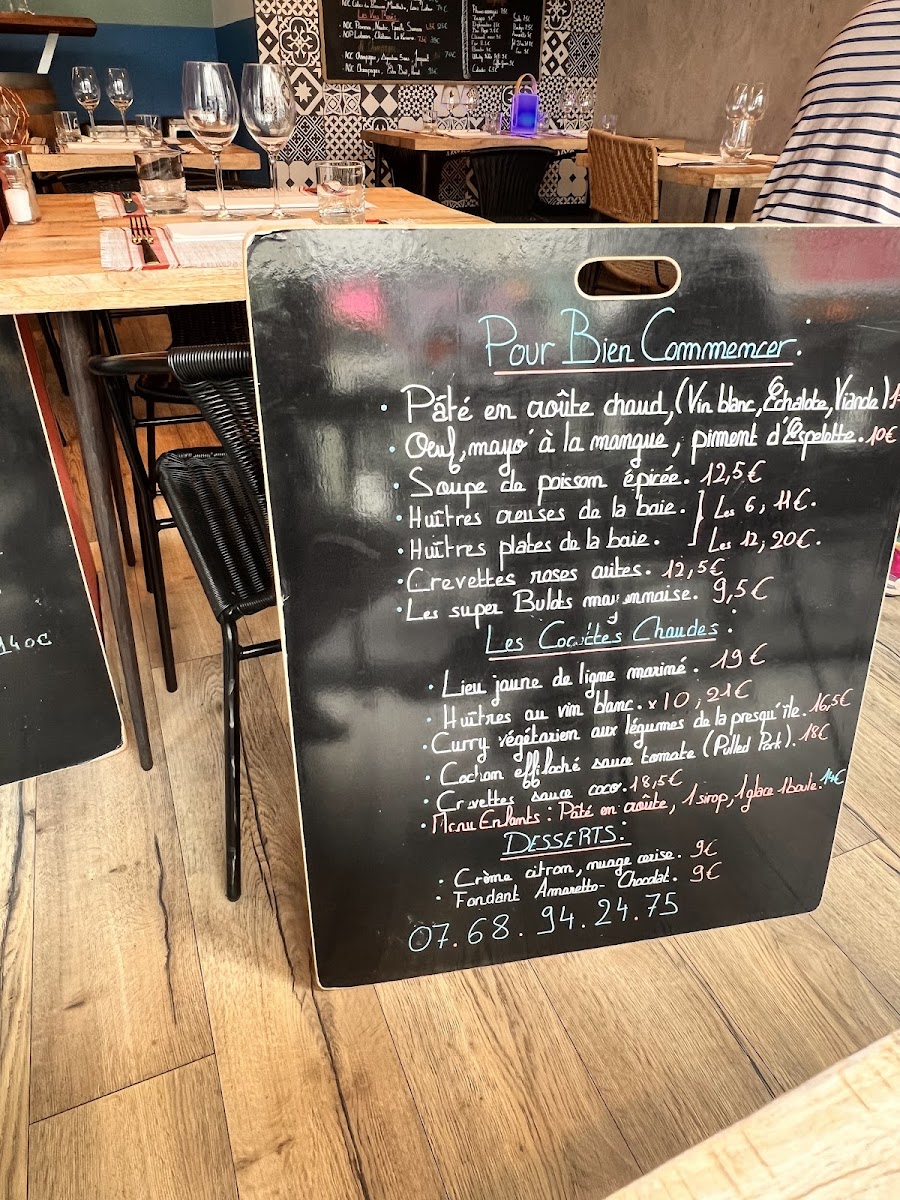 Les Vins Pétillants
Pour Bien Commencer.
• Pâté en croûte chaud, (Vin blanc, Échalote, Viande) 1
• Oeuf, mayo à la mangue, piment d'Espelette. 10€
• Soupe de poisson épicée. 12,5€
• Huîtres creuses de la baie. } Les 6, 11€.
• Huîtres plates de la baie. Les 12, 20€.
• Crevettes roses cuites. 12,5€
• Les super Bulots mayonnaise. 9,5€
Les Cocottes Chaudes.
• Lieu jaune de ligne mariné. 19€
• Huîtres au vin blanc. x10, 21€
• Curry végétarien aux légumes de la presqu'île. 16,5€
• Cochon effiloché sauce tomate (Pulled Pork). 18€
• Crevettes sauce coco. 18,5€
• Menu Enfants : Pâté en croûte, 1 sirop, 1 glace 1 boule. 14€
DESSERTS:
• Crème citron, nuage cerise. 9€
• Fondant Amaretto-Chocolat. 9€
07.68.94.24.75
140€